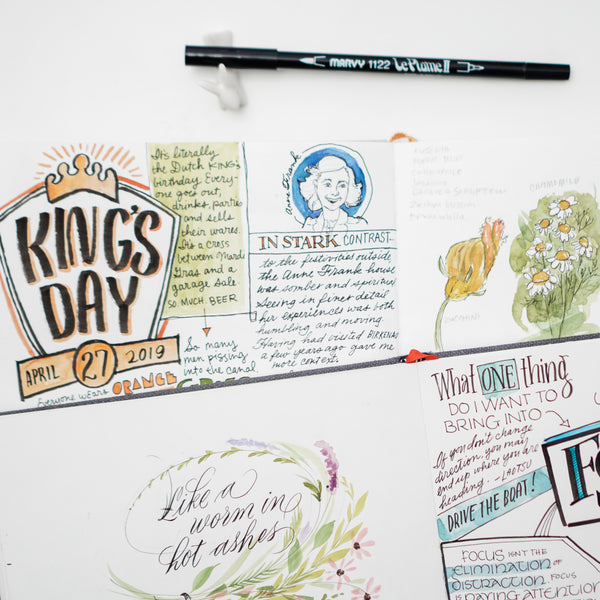 MARVY 1122 Le Plume II
KING'S
DAY
APRIL 27 2019
Everyone wears ORANGE
It's literally
the Dutch KING'S
birthday. Every-
one goes out,
drinks, parties
and sells
their wares.
It's a cross
between Mardi
Gras and a
garage sale.
SO. MUCH. BEER
So many
men pissing
into the canal
Anne Frank
IN STARK CONTRAST...
to the festivities outside
the Anne Frank house
was somber and spiritual
Seeing in finer detail
her experiences was both
humbling and moving.
Having had visited BIRKENAU
a few years ago gave me
more context.
CHAMOMILE
ZUCCHINI
What ONE thing
DO I WANT TO
BRING INTO
If you don't change
direction, you may
end up where you are
heading. -LAOTSU
DRIVE THE BOAT!
FOCUS ISN'T THE
ELIMINATION OF
DISTRACTION. FOCUS
IS PAYING ATTENTION
Like a
worm in
hot ashes